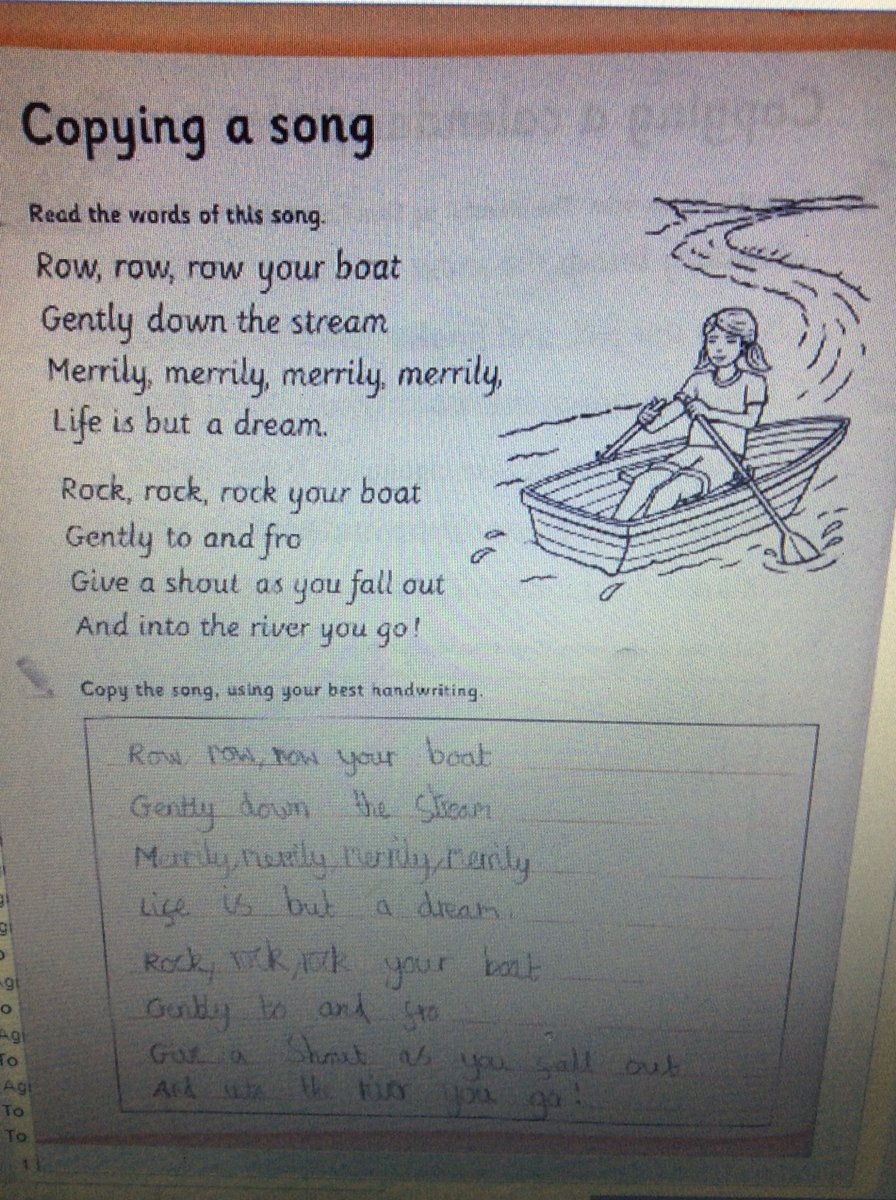 Copying a song
Read the words of this song.
Row, row, row your boat
Gently down the stream
Merrily, merrily, merrily, merrily,
Life is but a dream.
Rock, rock, rock your boat
Gently to and fro
Give a shout as you fall out
And into the river you go!
Copy the song, using your best handwriting.
Row, row, row your boat
Gently down the Stream
Merrily, merrily, Merrily, Merrily
Life is but a dream.
Rock, rock, rock your boat
Gently to and fro
Give a Shout as you fall out
And the river you go!
To
Agi
To
To